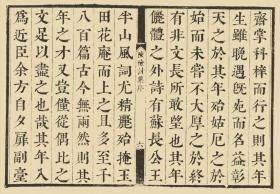 齋掌科棹而行之則其年
生雖晚遇既而名益彰
天之於其年始厄之於
始而未嘗不大厚之於終
有非文長所敢望也其年
儷體之外詩有蘇長公王
六
半山風詞尤精麗始掩玉
田花庵而上之且多至千
八百篇古今無兩然則其
年之才又豈僅從偶比之
文足以盡之也哉其年入
為近臣余方自夕扉副臺